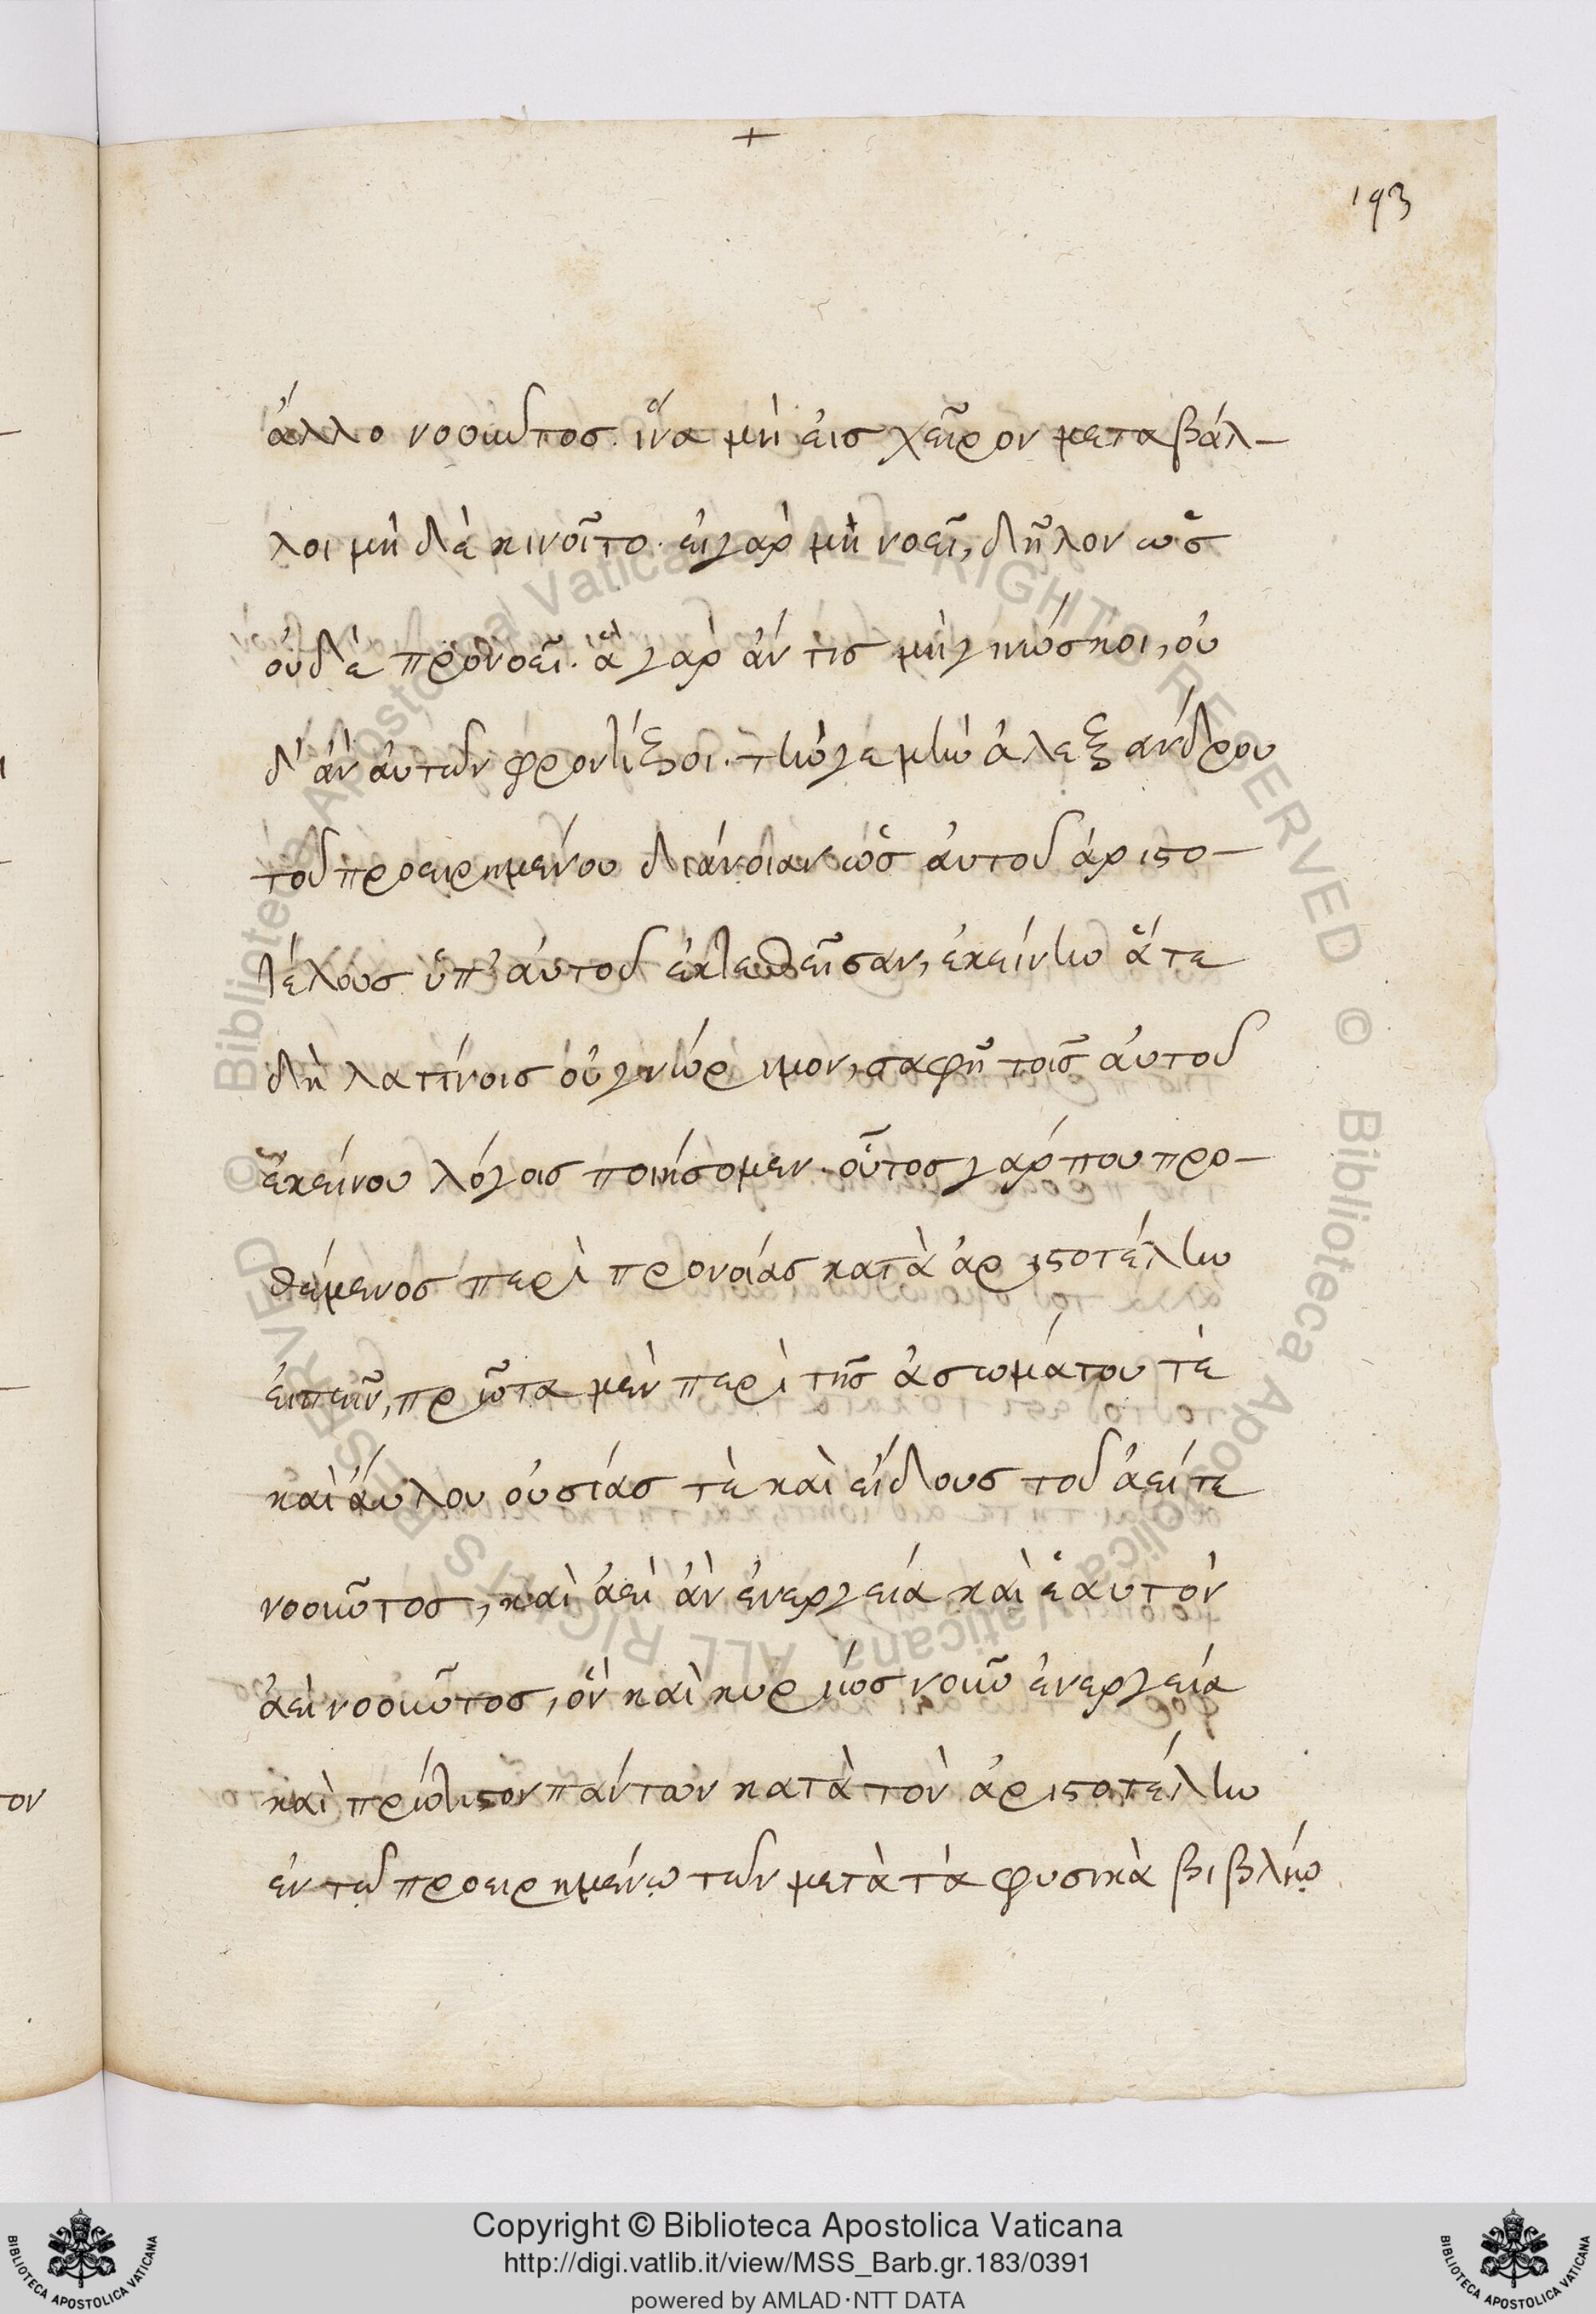 +
193
ἄλλο νοοῦντος. ἵνα μὴ εἰς χεῖρον μεταβάλ-
λοι μὴ δὲ κινοῖτο. εἰ γὰρ μὴ νοεῖ, δῆλον ὡς
οὐδὲ προνοεῖ. ἃ γὰρ ἄν τις μὴ γινώσκοι, οὐ
δ' ἂν αὐτῶν φροντίζοι. τὴν γε μὴν ἀλεξάνδρου
τοῦ προειρημένου διάνοιαν ὡς αὐτοῦ ἀριστο-
τέλους ὑπ' αὐτοῦ ἐκτεθεῖσαν, ἐκείνην ἅτε
δὴ λατίνοις οὐ γνώριμον, σαφῆ τοῖς αὐτοῦ
ἐκείνου λόγοις ποιήσομεν. οὗτος γάρ που προ-
θέμενος περὶ προνοίας κατὰ ἀριστοτέλην
εἰπεῖν, πρῶτα μὲν περὶ τῆς ἀσωμάτου τὲ
καὶ ἀύλου οὐσίας τὲ καὶ εἴδους τοῦ ἀεί τε
νοοῦντος, καὶ ἀεὶ ἂν ἐνεργεία καὶ ἑαυτὸν
ἀεὶ νοοῦντος, ὃν καὶ κυρίως νοῦν ἐνεργεία
καὶ πρώτιστον πάντων κατὰ τὸν ἀριστοτέλην
ἐν τῶ προειρημένω τῶν μετὰ τὰ φυσικὰ βιβλίω
τον
BIBLIOTECA APOSTOLICA VATICANA
Copyright © Biblioteca Apostolica Vaticana
http://digi.vatlib.it/view/MSS_Barb.gr.183/0391
powered by AMLAD·NTT DATA
BIBLIOTECA APOSTOLICA VATICANA
© Biblioteca Apostolica Vaticana ALL RIGHTS RESERVED © Biblioteca Apostolica Vaticana ALL RIGHTS RESERVED